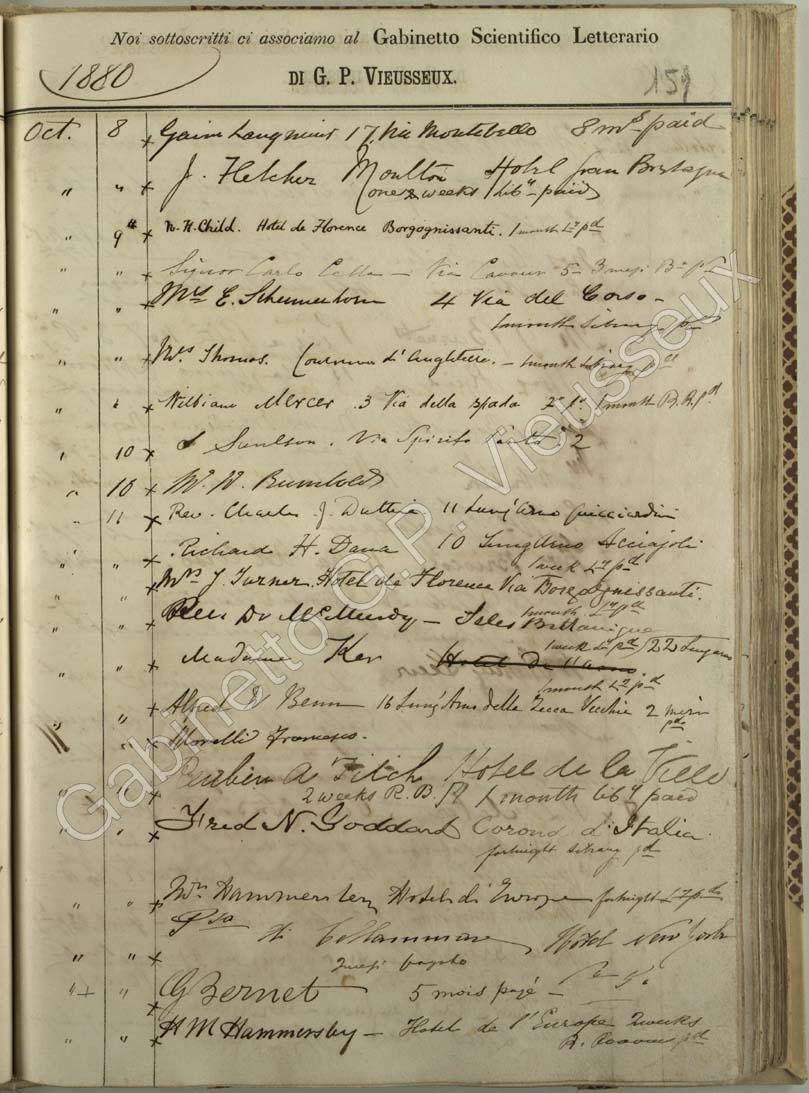 Noi sottoscritti ci associamo al Gabinetto Scientifico Letterario
1880
DI G. P. VIEUSSEUX.
159
Oct. 8 x 17, Via Montebello 8 mts paid
" " x J. Fletcher Moulton Hotel Gran Bretagna
(one & weeks liby paid)
" 9th x W. H. Child. Hotel de Florence Borgognissanti. 1 month Ly pd
" " x Signor Carlo Cella — Via Cavour 5 – 3 mesi
" " x Mrs E. Schermerhorn 4 Via del Corso –
1 month Library pd
" " x Mrs Thomas. Couronne d'Angleterre. – 1 month Library pd
" " x William Mercer. 3 Via della Spada 2o po 1 month R.R. pd
" 10 x Via Spirito Santo 2
" 10 x W. Rumbold
" 11 x Rev. Charles J. 11 Lung'Arno Guicciardini
" " x Richard H. Dana 10 Lungarno Acciajoli
1 week Ly pd
" " x Mrs J. Turner. Hotel de Florence Via Borgognissanti.
1 month Ly pd
" " x Dr McMurdy – Isles Britanique
1 week Ly pd / 22 Lungarno
" " x Madame Ker
1 month Ly pd
" " x Alfred W Benn 16 Lung'Arno della Zecca Vecchia 2 mesi
pd
" " x Morelli Francesco.
" " Reuben A Fitch Hotel de la Ville
2 weeks R. R. 1 month liby paid
" " x Fred N. Goddard Corona d'Italia.
fortnight Library pd
" " x Mrs Hammersley Hotel d'Europe fortnight Ly pd
Pssa
" " x di Hotel New York
2 mesi
" " x G Bernet 5 mois payé –
" " x H M Hammersley — Hotel de l'Europe 2 weeks
R. Rooms pd
Gabinetto G.P. Vieusseux